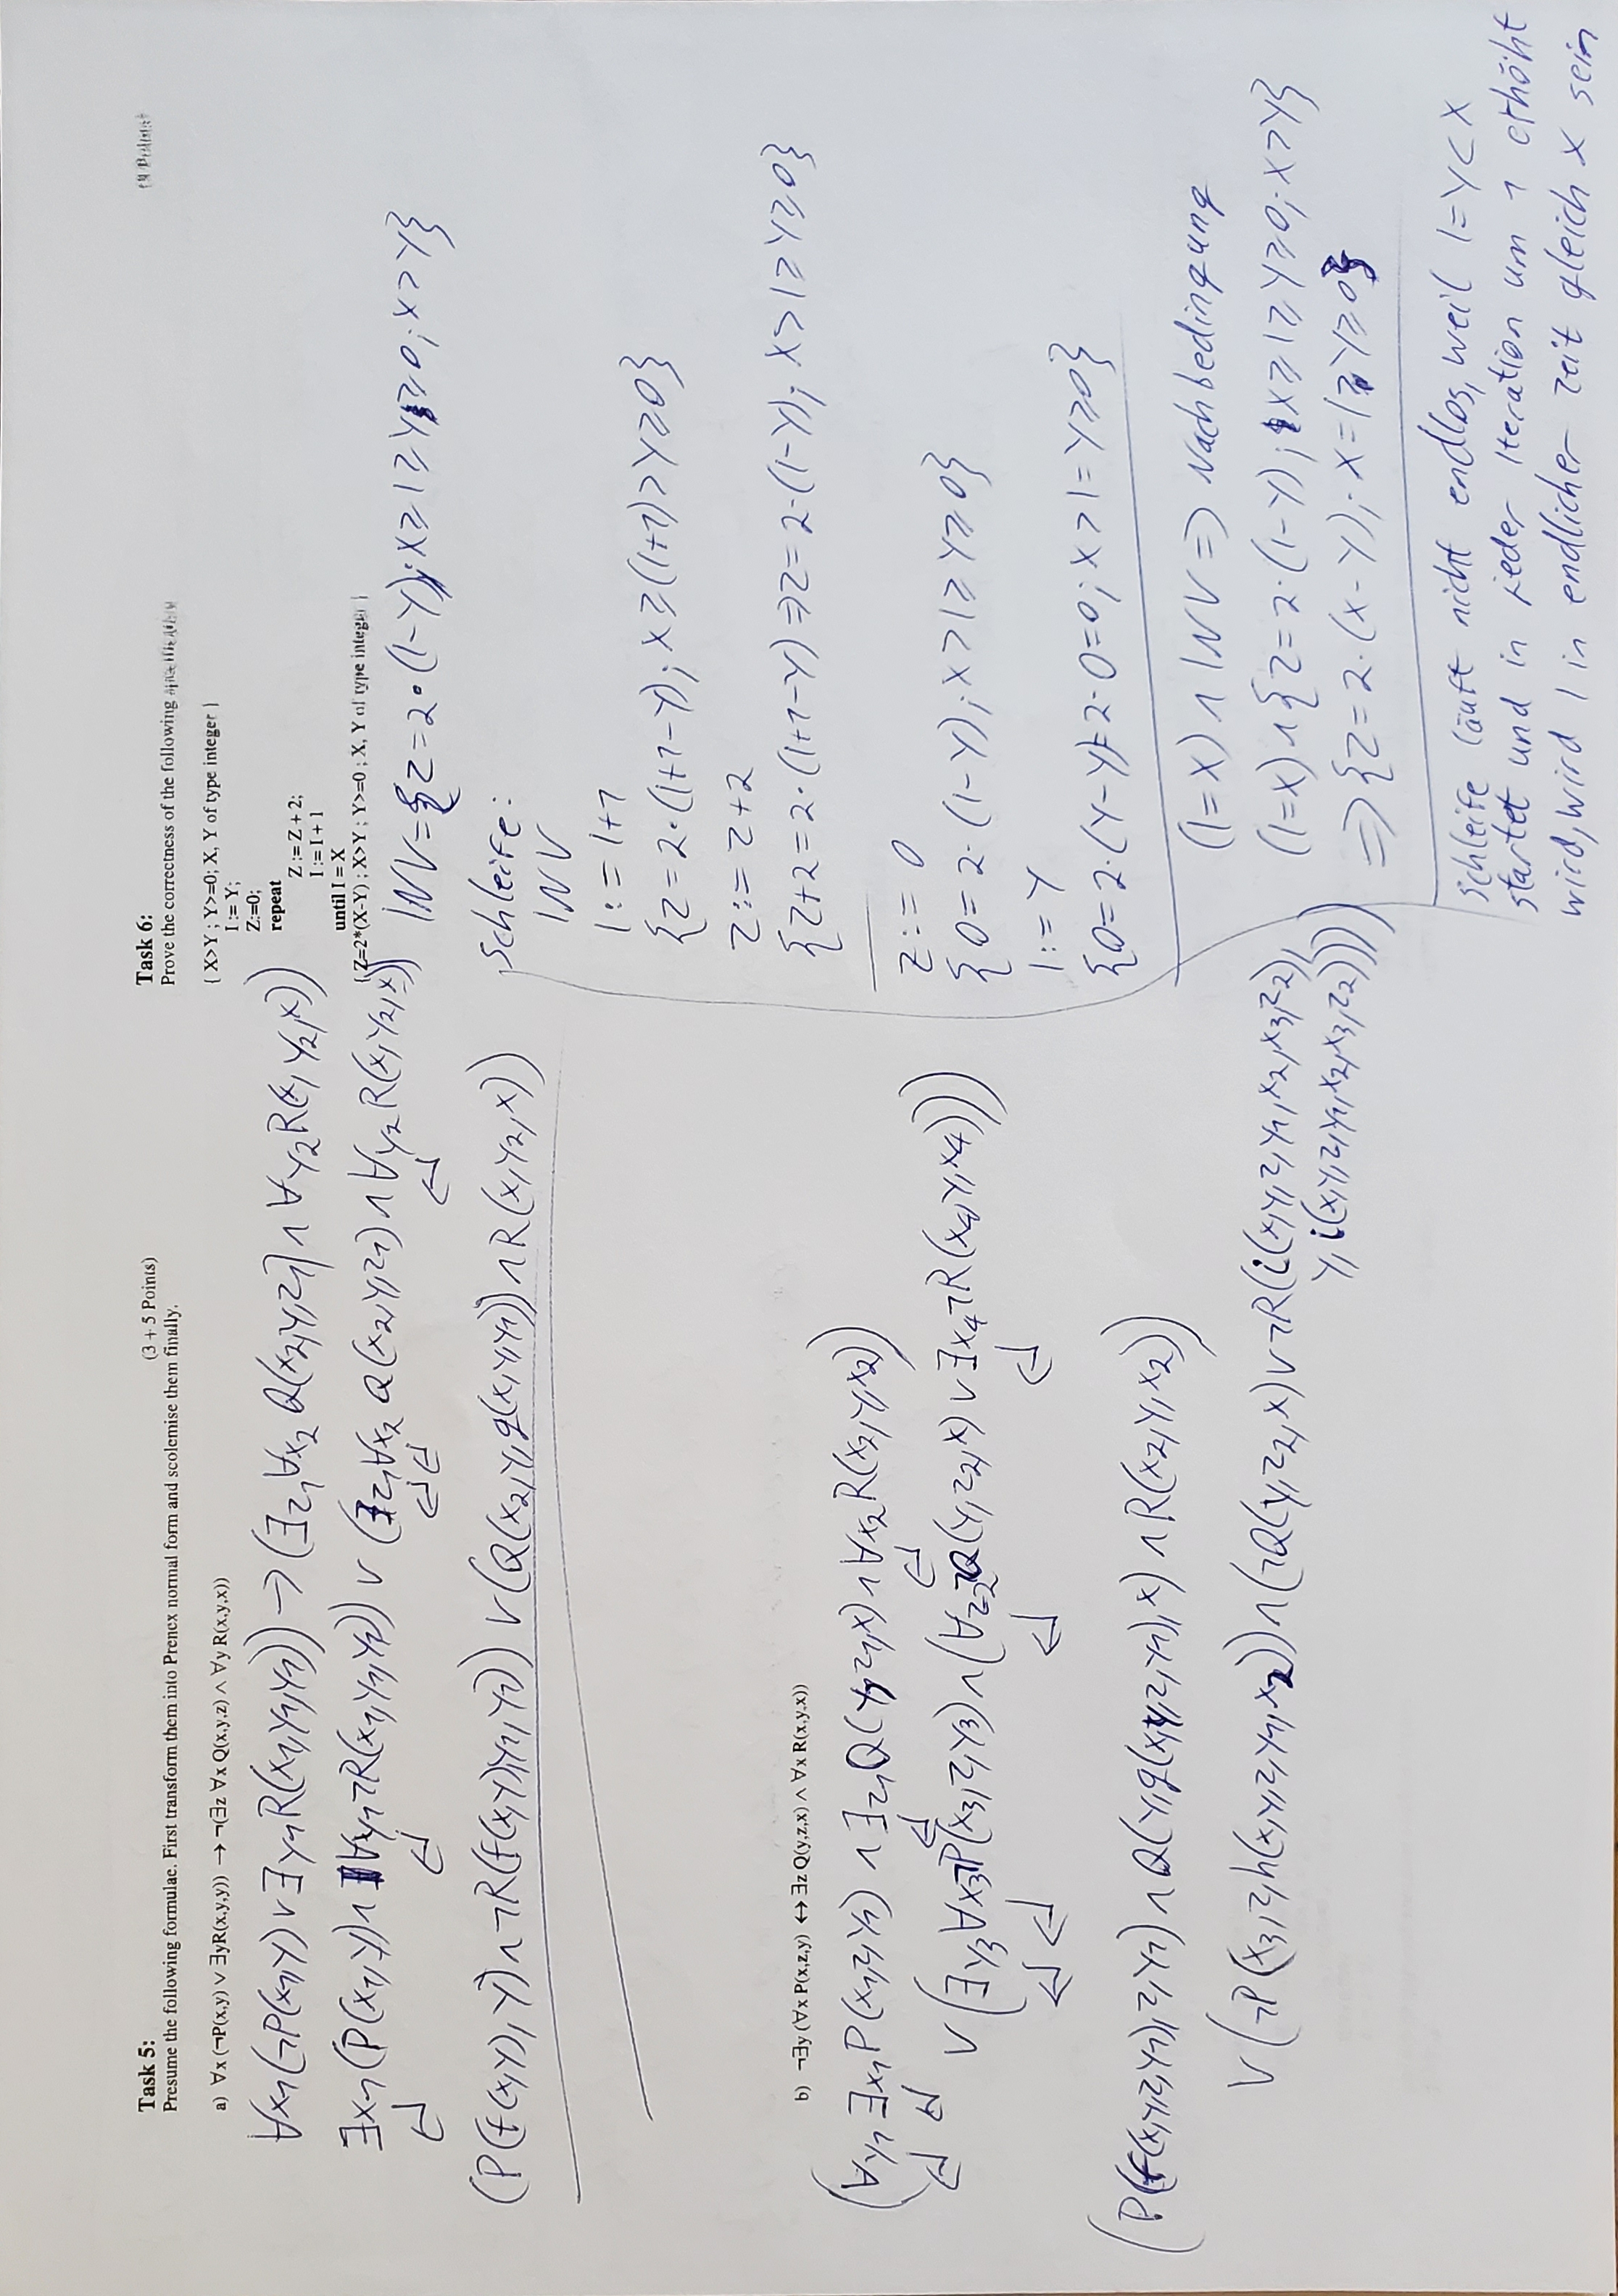 Task 5:
(3 + 5 Points)
Presume the following formulae. First transform them into Prenex normal form and scolemise them finally.
a) ∀x (¬P(x,y) ∨ ∃yR(x,y,y)) → ¬(∃z ∀x Q(x,y,z) ∧ ∀y R(x,y,x))
∀x₁(¬P(x₁,y) ∨ ∃y₁R(x₁,y₁,y₁)) → (∃z₁∀x₂ Q(x₂,y,z₁) ∧ ∀y₂R(x,y₂,x))
∃x₁(P(x₁,y) ∧ ∀y₁¬R(x₁,y₁,y₁)) ∨ (∃z₁∀x₂ Q(x₂,y,z₁) ∧ ∀y₂R(x,y₂,x))
(P(f(x,y),y) ∧ ¬R(f(x,y),y₁,y₁)) ∨ (Q(x₂,y,g(x,y,y₁)) ∧ R(x,y₂,x))
b) ¬∃y (∀x P(x,z,y) ↔ ∃z Q(y,z,x) ∧ ∀x R(x,y,x))
(∀y₁∃x₁P(x₁,z,y₁) ∧ ∃z₁Q(y,z₁,x) ∧ ∀x₂R(x₂,y,x₂))
∨ (∃y₃∀x₃¬P(x₃,z,y₃) ∧ (∀z₂¬Q(y,z₂,x) ∨ ∃x₄¬R(x₄,y,x₄)))
(P(f(x,y,z,y₁),z,y₁) ∧ Q(y,g(x,y,z,y₁),x) ∧ R(x₂,y,x₂))
∨ (¬P(x₃,z,h(x,y,z,y₁,x₂)) ∧ (¬Q(y,z₂,x) ∨ ¬R(i(x,y,z,y₁,x₂,x₃,z₂),
y,i(x,y,z,y₁,x₂,x₃,z₂))))
Task 6:
Prove the correctness of the following
{ X>Y ; Y>=0; X, Y of type integer }
I := Y;
Z:=0;
repeat
Z := Z + 2;
I := I + 1
until I = X
{Z=2*(X-Y) ; X>Y ; Y>=0 ; X, Y of type integer }
INV = {Z = 2·(I-Y); X ≥ I ≥ Y ≥ 0; X > Y}
Schleife:
INV
I := I+1
{Z = 2·(I+1-Y); X ≥ (I+1) > Y ≥ 0}
Z := Z+2
{Z+2 = 2·(I+1-Y) ⇒ Z = 2·(I-Y); X > I ≥ Y ≥ 0}
Z := 0
{0 = 2·(I-Y); X > I ≥ Y ≥ 0}
I := Y
{0 = 2·(Y-Y) = 2·0 = 0; X > I = Y ≥ 0}
(I=X) ∧ INV ⇒ Nachbedingung
(I=X) ∧ {Z = 2·(I-Y); X ≥ I ≥ Y ≥ 0; X > Y}
⇒ {Z = 2·(X-Y); X = I ≥ Y ≥ 0}
Schleife läuft nicht endlos, weil I = Y < X
startet und in jeder Iteration um 1 erhöht
wird, wird I in endlicher Zeit gleich X sein